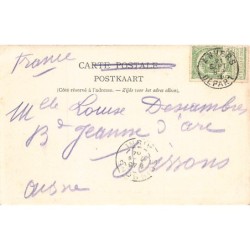 France
CARTE POSTALE
POSTKAART
(Côté réservé à l'adresse. — Zijde voor het adres alleen.)
ANVERS
DEPART
Melle Louise Descambres
Bd Jeanne d'arc
Soissons
Aisne